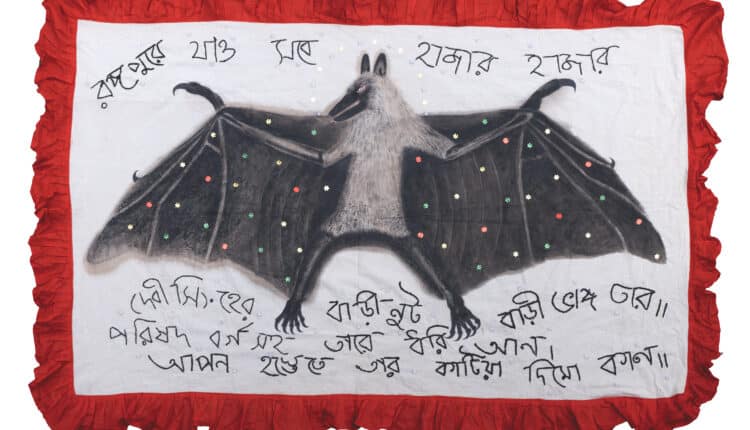 রঙ্গপুরে যাও সবে হাজার হাজার
দেবী সিংহের বাড়ী লুট বাড়ী ভাঙ্গ তার॥
পরিষদ বর্গ সহ তারে ধরি আন।
আপন হস্তেতে তার কাটিয়া দিমো কান॥